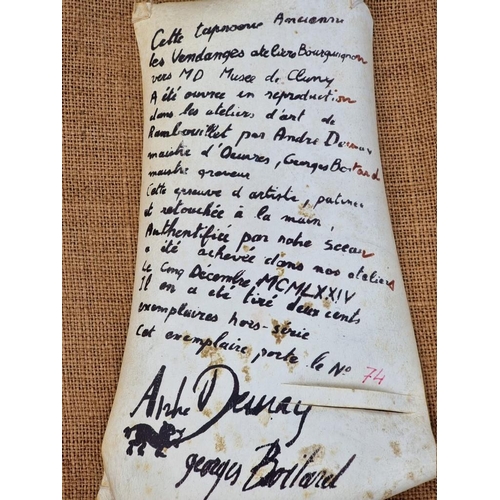 Cette tapisserie Ancienne
les Vendanges ateliers Bourguignon
vers MD Musée de Cluny
A été ouvrée en reproduction
dans les ateliers d'art de
Rambouillet par André Demay
maistre d'Oeuvres, Georges Boitard
maistre graveur
Cette épreuve d'artiste, patinée
et retouchée à la main,
Authentifiée par notre Sceau
a été achevée dans nos ateliers
Le Cinq Décembre MCMLXXIV
Il en a été tiré deux cents
exemplaires hors-série
Cet exemplaire porte le N° 74
André Demay
georges Boitard